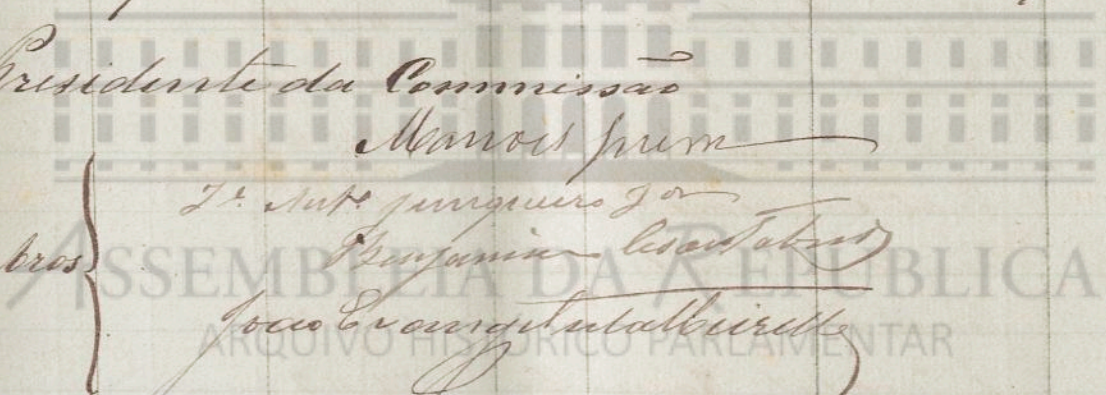 Presidente da Commissão
Manoel
Je. Anto. Junqueiro Jor
bros
Benjamin Cesar
João Evangelista Meirelles
ASSEMBLEIA DA REPÚBLICA
ARQUIVO HISTÓRICO PARLAMENTAR